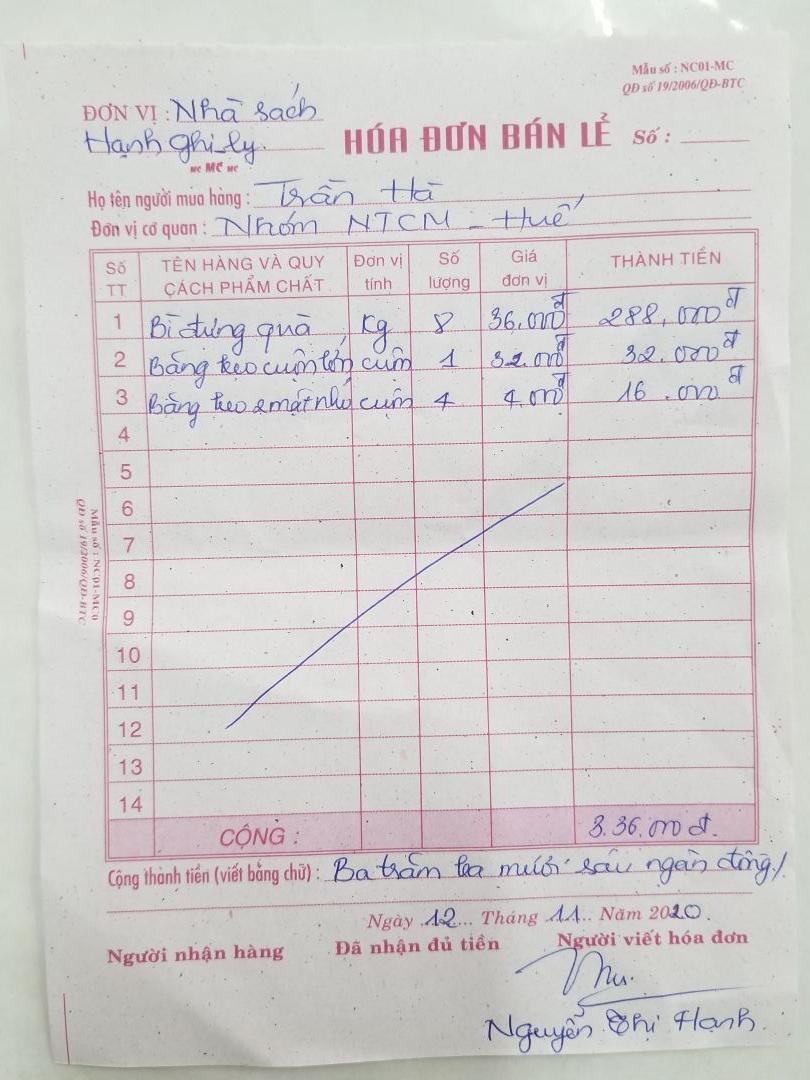 Mẫu số : NC01-MC
QĐ số 19/2006/QĐ-BTC
ĐƠN VỊ : Nhà sách
Hạnh Ghi-ly.
MC MC MC
HÓA ĐƠN BÁN LẺ Số :
Họ tên người mua hàng : Trần Hà
Đơn vị cơ quan : Nhóm NTCM - Huế
Số TT TÊN HÀNG VÀ QUY CÁCH PHẨM CHẤT Đơn vị tính Số lượng Giá đơn vị THÀNH TIỀN
1 Bì đựng quà Kg 8 36.000đ 288.000đ
2 Băng keo cuộn lớn cuộn 1 32.000đ 32.000đ
3 Băng keo 2 mặt nhỏ cuộn 4 4.000đ 16.000đ
4
5
6
7
8
9
10
11
12
13
14
CỘNG : 3.36.000đ.
Cộng thành tiền (viết bằng chữ) : Ba trăm ba mươi sáu ngàn đồng/
Ngày 12... Tháng 11.. Năm 2020.
Người nhận hàng Đã nhận đủ tiền Người viết hóa đơn
Nguyễn Thị Hạnh.
Mẫu số : NC01-MC
QĐ số 19/2006/QĐ-BTC